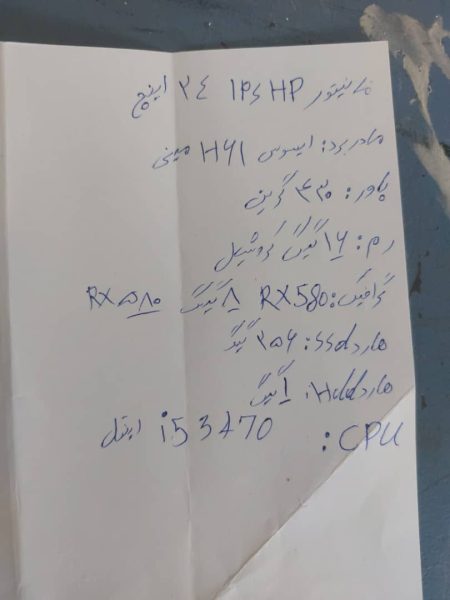 مانیتور IPS HP ۲۴ اینچ
مادربرد: ایسوس H۶۱ مینی
پاور: ۴۳۰ گرین
رم: ۱۶ گیگ کروشیال
گرافیک: RX580 ۸ گیگ RX ۵۸۰
هارد ssd: ۲۵۶ گیگ
هارد Hdd: ۱ گیگ
CPU: i5 3470 اینتل